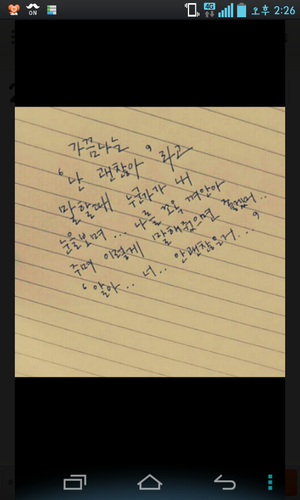 ON
4G
오후 2:26
가끔나는
'난 괜찮아' 라고
말할때 누군가가 내
눈을보며... 나를 꼬옥 껴안아
주며 이렇게 말해줬으면 좋겠어..
'알아.. 너.. 안괜찮은거...'